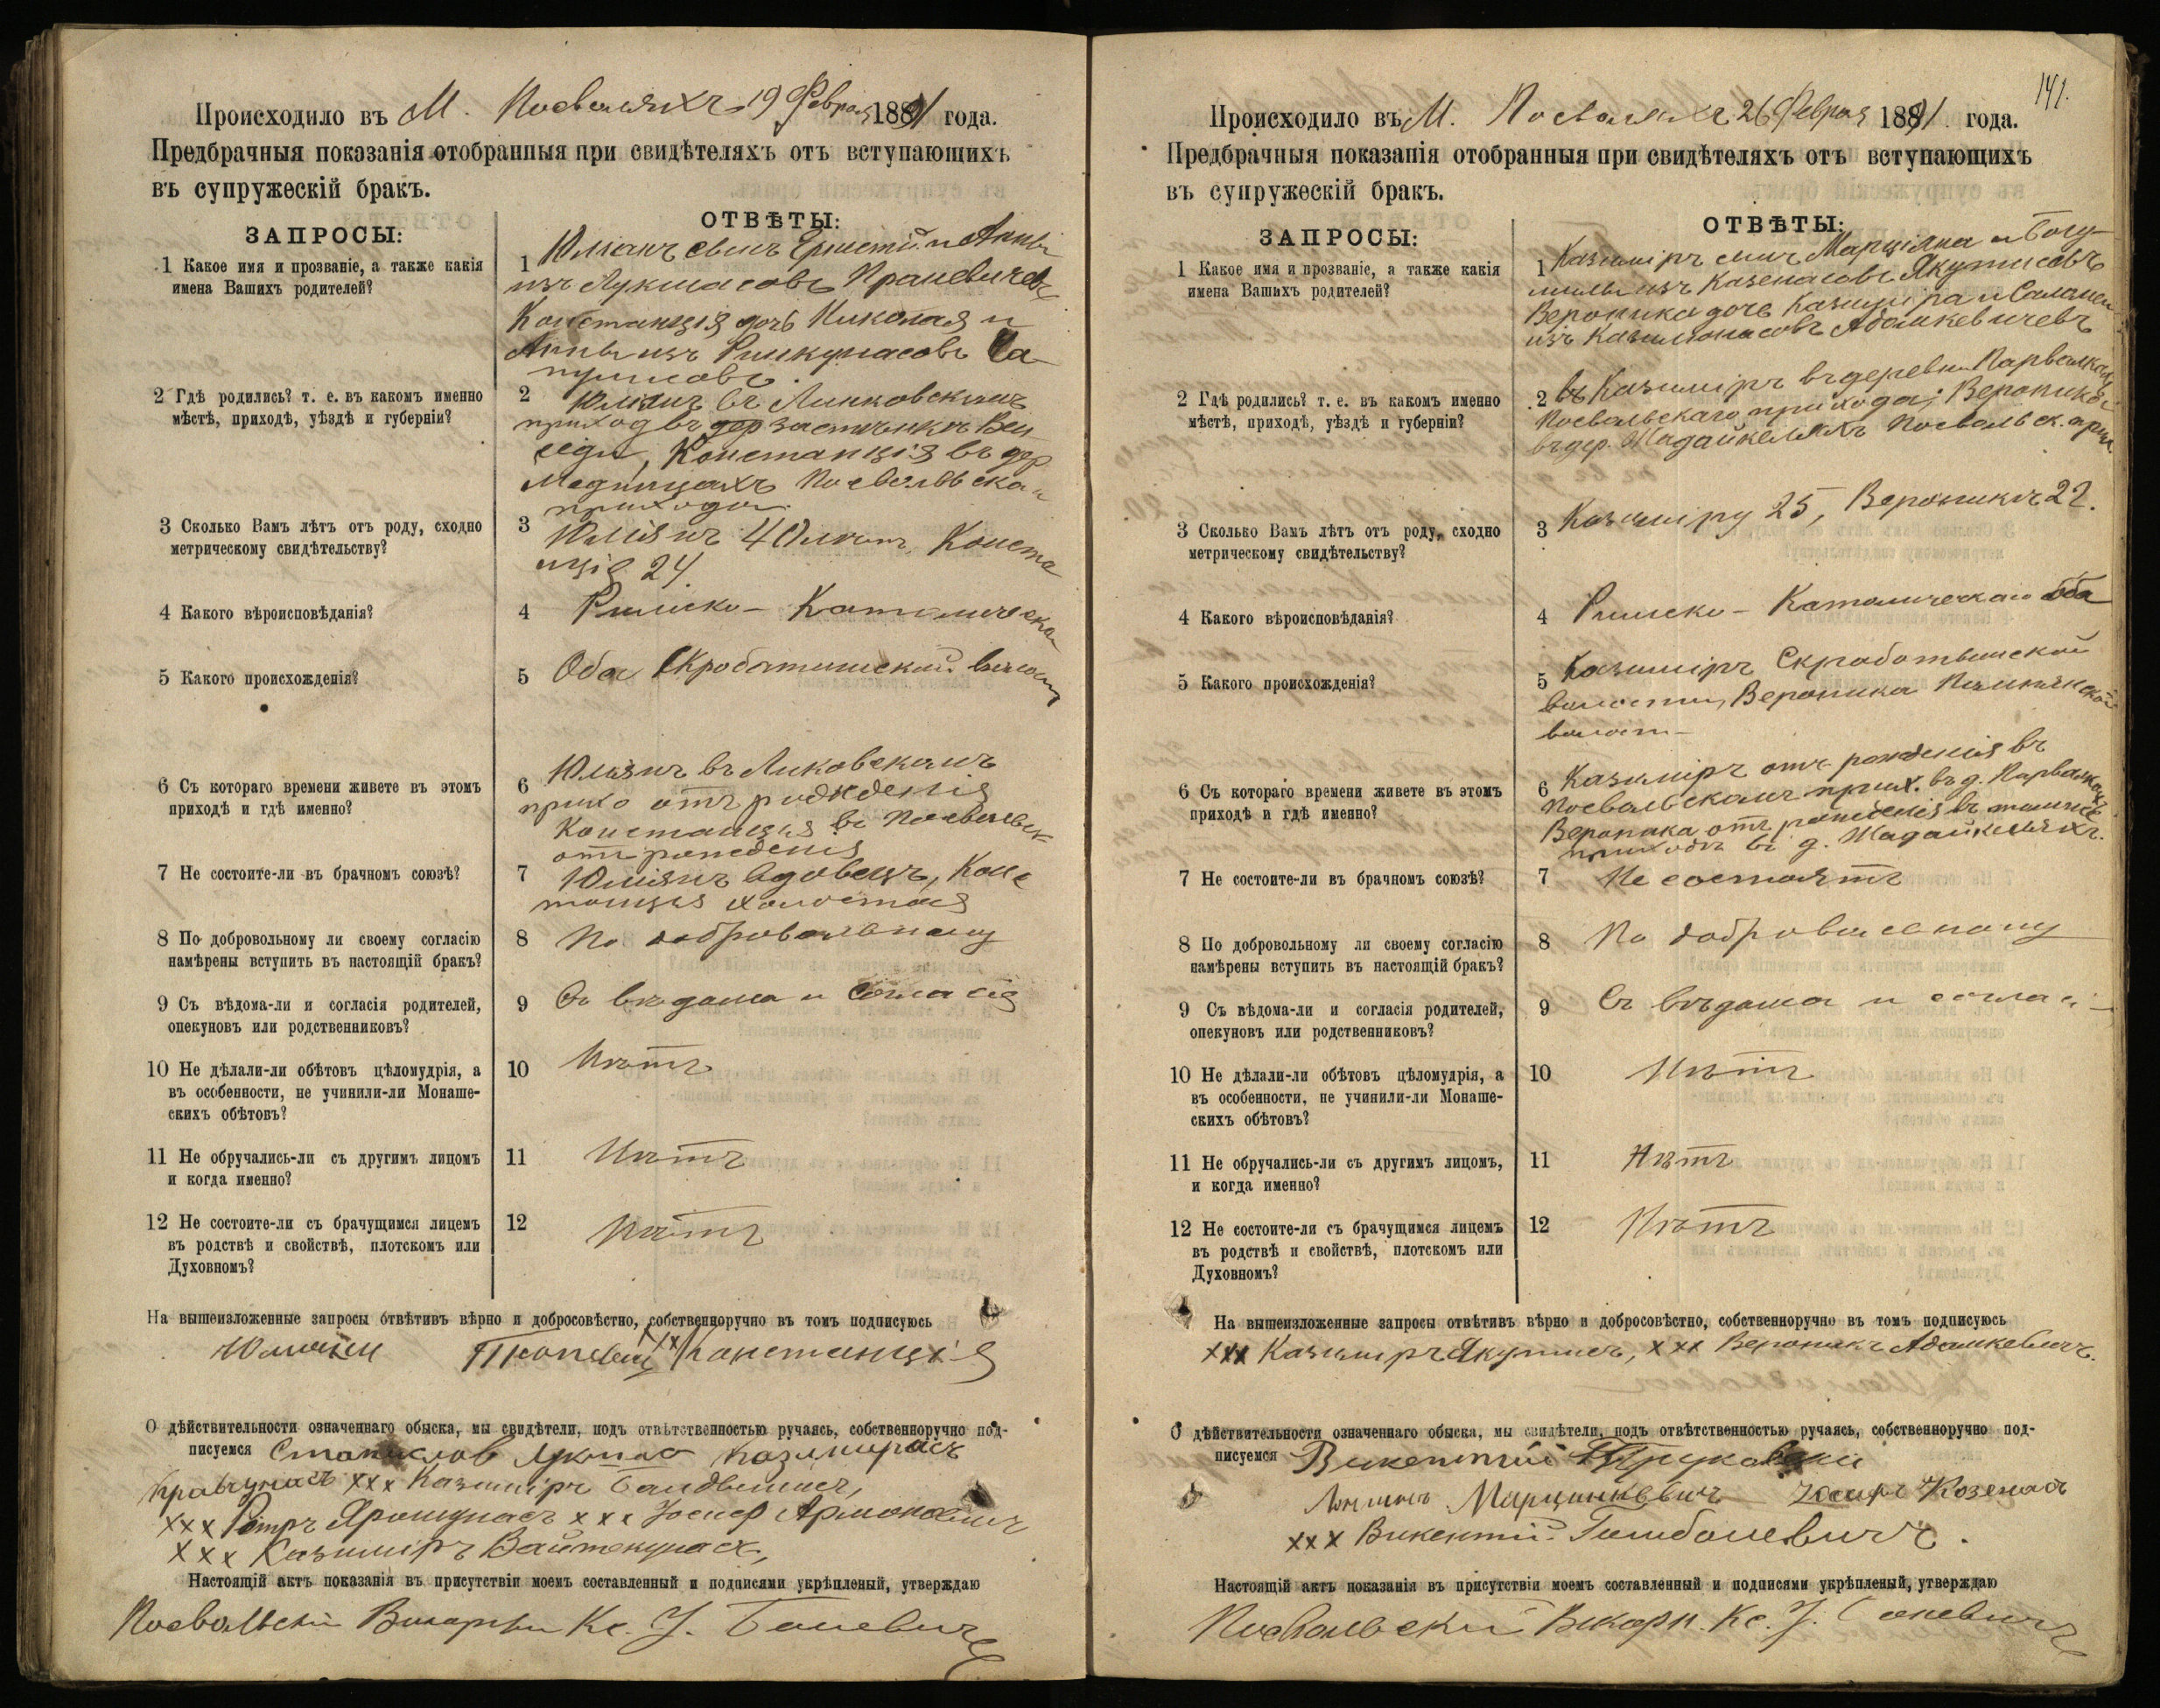 Происходило въ М. Посваляхъ 19 Февраля 1891 года.
Предбрачныя показанія отобранныя при свидѣтеляхъ отъ вступающихъ
въ супружескій бракъ.
ЗАПРОСЫ:
ОТВѢТЫ:
1 Какое имя и прозваніе, а также какія
имена Вашихъ родителей?
1 Юліанъ сынъ Ернеста и Анны
изъ Лукшасовъ Праневичевъ
Констанція дочь Николая и
Анны изъ Римкунасовъ
2 Гдѣ родились? т. е. въ какомъ именно
мѣстѣ, приходѣ, уѣздѣ и губерніи?
2 Юліанъ въ Линковскомъ
приходѣ въ застенкѣ
Констанція въ дер
Посвольска
прихода.
3 Сколько Вамъ лѣтъ отъ роду, сходно
метрическому свидѣтельству?
3 Юліянъ 40 лѣтъ, Конста
нція 24.
4 Какого вѣроисповѣданія?
4 Римско-Католическаго
5 Какого происхожденія?
5 Оба Скробатишской волости
6 Съ котораго времени живете въ этомъ
приходѣ и гдѣ именно?
6 Юльянъ въ Линковскомъ
прихо отъ рождения
Констанція въ Посвольск
отъ рожденія
7 Не состоите-ли въ брачномъ союзѣ?
7 Юліянъ вдовецъ, Конс
танція холостая
8 По добровольному ли своему согласію
намѣрены вступить въ настоящій бракъ?
8 По добровольному
9 Съ вѣдома-ли и согласія родителей,
опекуновъ или родственниковъ?
9 Съ вѣдома и согласія
10 Не дѣлали-ли обѣтовъ цѣломудрія, а
въ особенности, не учинили-ли Монаше-
скихъ обѣтовъ?
10 Нѣтъ
11 Не обручались-ли съ другимъ лицомъ
и когда именно?
11 Нѣтъ
12 Не состоите-ли съ брачущимся лицемъ
въ родствѣ и свойствѣ, плотскомъ или
Духовномъ?
12 Нѣтъ
На вышеизложенные запросы отвѣтивъ вѣрно и добросовѣстно, собственноручно въ томъ подписуюсь
xxx Констанція
О дѣйствительности означеннаго обыска, мы свидѣтели, подъ отвѣтственностью ручаясь, собственноручно под-
писуемся Казимирасъ
xxx Казиміръ
xxx Петръ Ярошунасъ xxx Іосиф Армонавич
xxx Казиміръ Вайтекунасъ,
Настоящій актъ показанія въ присутствіи моемъ составленный и подписями укрѣпленый, утверждаю
Посвольскій Викарный Кс. І. Боневичъ
141.
Происходило въ М. Посваляхъ 26 Февраля 1891 года.
Предбрачныя показанія отобранныя при свидѣтеляхъ отъ вступающихъ
въ супружескій бракъ.
ЗАПРОСЫ:
ОТВѢТЫ:
1 Какое имя и прозваніе, а также какія
имена Вашихъ родителей?
1 Казиміръ сынъ Марціяна и Богу
милы изъ Каземасовъ Якутисовъ
Вероника дочь Казиміра и Саломеи
изъ Казилюнасовъ Адамкевичевъ
2 Гдѣ родились? т. е. въ какомъ именно
мѣстѣ, приходѣ, уѣздѣ и губерніи?
2 Казиміръ въ деревни
Посвольскаго прихода; Вероника
въ дер. Жадайкеляхъ Посвольск. прих
3 Сколько Вамъ лѣтъ отъ роду, сходно
метрическому свидѣтельству?
3 Казиміру 25, Вероникѣ 22.
4 Какого вѣроисповѣданія?
4 Римско-Католическаго оба
5 Какого происхожденія?
5 Казиміръ Скработишской
волости, Вероника
волости
6 Съ котораго времени живете въ этомъ
приходѣ и гдѣ именно?
6 Казиміръ отъ рожденія въ
Посвольскомъ прих. въ д.
Вероника отъ рожденія въ томже
приходѣ въ д. Жадайкеляхъ.
7 Не состоите-ли въ брачномъ союзѣ?
7 Не состоятъ
8 По добровольному ли своему согласію
намѣрены вступить въ настоящій бракъ?
8 По добровольному
9 Съ вѣдома-ли и согласія родителей,
опекуновъ или родственниковъ?
9 Съ вѣдома и согласі
10 Не дѣлали-ли обѣтовъ цѣломудрія, а
въ особенности, не учинили-ли Монаше-
скихъ обѣтовъ?
10 Нѣтъ
11 Не обручались-ли съ другимъ лицомъ,
и когда именно?
11 Нѣтъ
12 Не состоите-ли съ брачущимся лицемъ
въ родствѣ и свойствѣ, плотскомъ или
Духовномъ?
12 Нѣтъ
На вышеизложенные запросы отвѣтивъ вѣрно и добросовѣстно, собственноручно въ томъ подписуюсь
xxx Казиміръ Якутисъ, xxx Вероника Адамкевичъ.
О дѣйствительности означеннаго обыска, мы свидѣтели, подъ отвѣтственностью ручаясь, собственноручно под-
писуемся Викентій
Марцинкевичъ
xxx Викентій Гимболевичъ.
Настоящій актъ показанія въ присутствіи моемъ составленный и подписями укрѣпленый, утверждаю
Посвольскій Викарн. Кс. І. Боневичъ